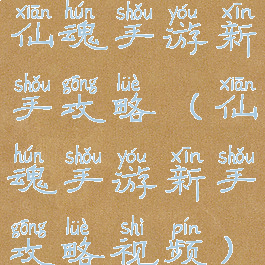 xiān hún shǒu yóu xīn
仙魂手游新
shǒu gōng lüè xiān
手攻略(仙
hún shǒu yóu xīn shǒu
魂手游新手
gōng lüè shì pín
攻略视频)